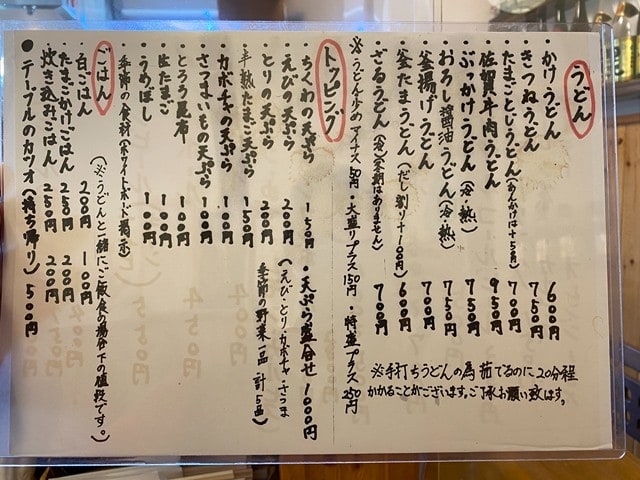 うどん
・かけうどん 600円
・きつねうどん 750円
・たまごとじうどん(あんかけは+50円) 700円
・佐賀牛肉うどん 950円
・ぶっかけうどん(冷・熱) 750円
・おろし醤油うどん(冷・熱) 750円
・釜揚げうどん 700円
・釜たまうどん(だし割り+100円) 600円
・ざるうどん(冷)(冬期はありません) 700円
※うどん少なめ マイナス50円・大盛りプラス150円・特盛プラス250円
※手打ちうどんの為茹でるのに20分程
かかることがございます。ご了承お願い致します。
トッピング
・ちくわの天ぷら 150円
・えびの天ぷら 200円
・とりの天ぷら 200円
・半熟たまご天ぷら 150円
・カボチャの天ぷら 100円
・さつまいもの天ぷら 100円
・とろろ昆布 100円
・生たまご 100円
・うめぼし 100円
・季節の食材(ホワイトボード掲示)
・天ぷら盛合せ 1000円
(えび・とり・カボチャ・さつま
季節の野菜一品 計5品)
ごはん
(※うどんと一緒にご飲食の場合下の値段です。)
・白ごはん 200円 100円
・たまごかけごはん 250円 200円
・炊き込みごはん 250円 200円
●テーブルのカツオ(持ち帰り) 500円